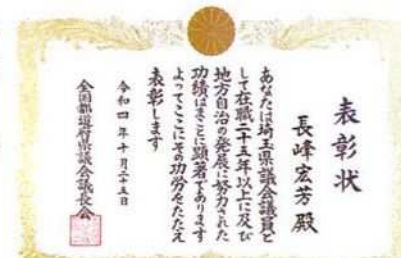 表彰状
長峰宏芳 殿
あなたは埼玉県議会議員と
して在職二十五年以上に及び
地方自治の発展に努力された
功績はまことに顕著であります
よってここにその功労をたたえ
表彰します
令和四年十月二十五日
全国都道府県議会議長会